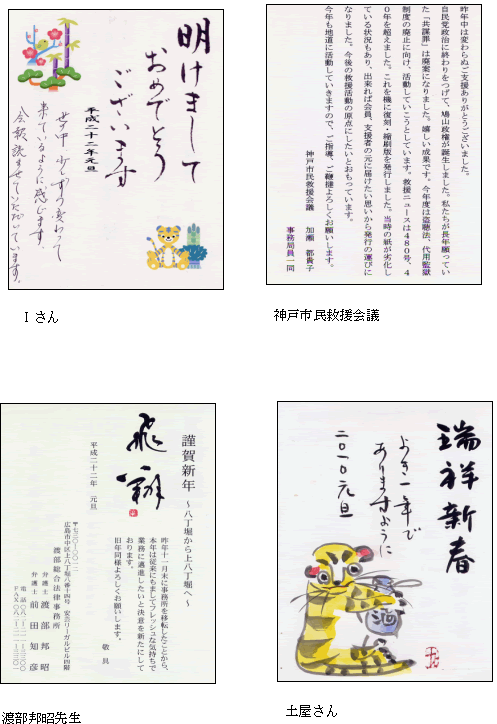 明けまして
おめでとう
ございます
平成二十二年元旦
世の中 少しずつ変わって
来ているように感じます。
会報読ませていただいています。
Ｉさん
昨年中は変わらぬご支援ありがとうございました。
自民党政治に終わりをつげて、鳩山政権が誕生しました。私たちが長年願ってい
た「共謀罪」は廃案になりました。嬉しい成果です。今年度は盗聴法、代用監獄
制度の廃止に向け、活動していこうとしています。救援ニュースは４８０号、４
０年を超えました。これを機に復刻・縮刷版を発行しました。当時の紙が劣化し
ている状況もあり、出来れば会員、支援者の元に届けたい思いから発行の運びに
なりました。今後の救援活動の原点にしたいとおもっています。
今年も地道に活動していきますので、ご指導、ご鞭撻よろしくお願いします。
神戸市民救援会議 加瀬 都貴子
事務局員一同
神戸市民救援会議
謹賀新年 ～八丁堀から上八丁堀へ～
飛翔
昨年十一月末に事務所を移転したことから、
本年は従来にもましてフレッシュな気持ちで
業務に邁進したいと決意を新たにして
おります。
旧年同様よろしくお願いします。
敬具
平成二十二年 元旦
広島市中区上八丁堀八番十四号 安芸リーガルビル四階
渡部総合法律事務所
弁護士 渡部邦昭
弁護士 前田知彦
渡部邦昭先生
瑞祥新春
よき一年で
ありますように
二〇一〇元旦
酒
土屋さん